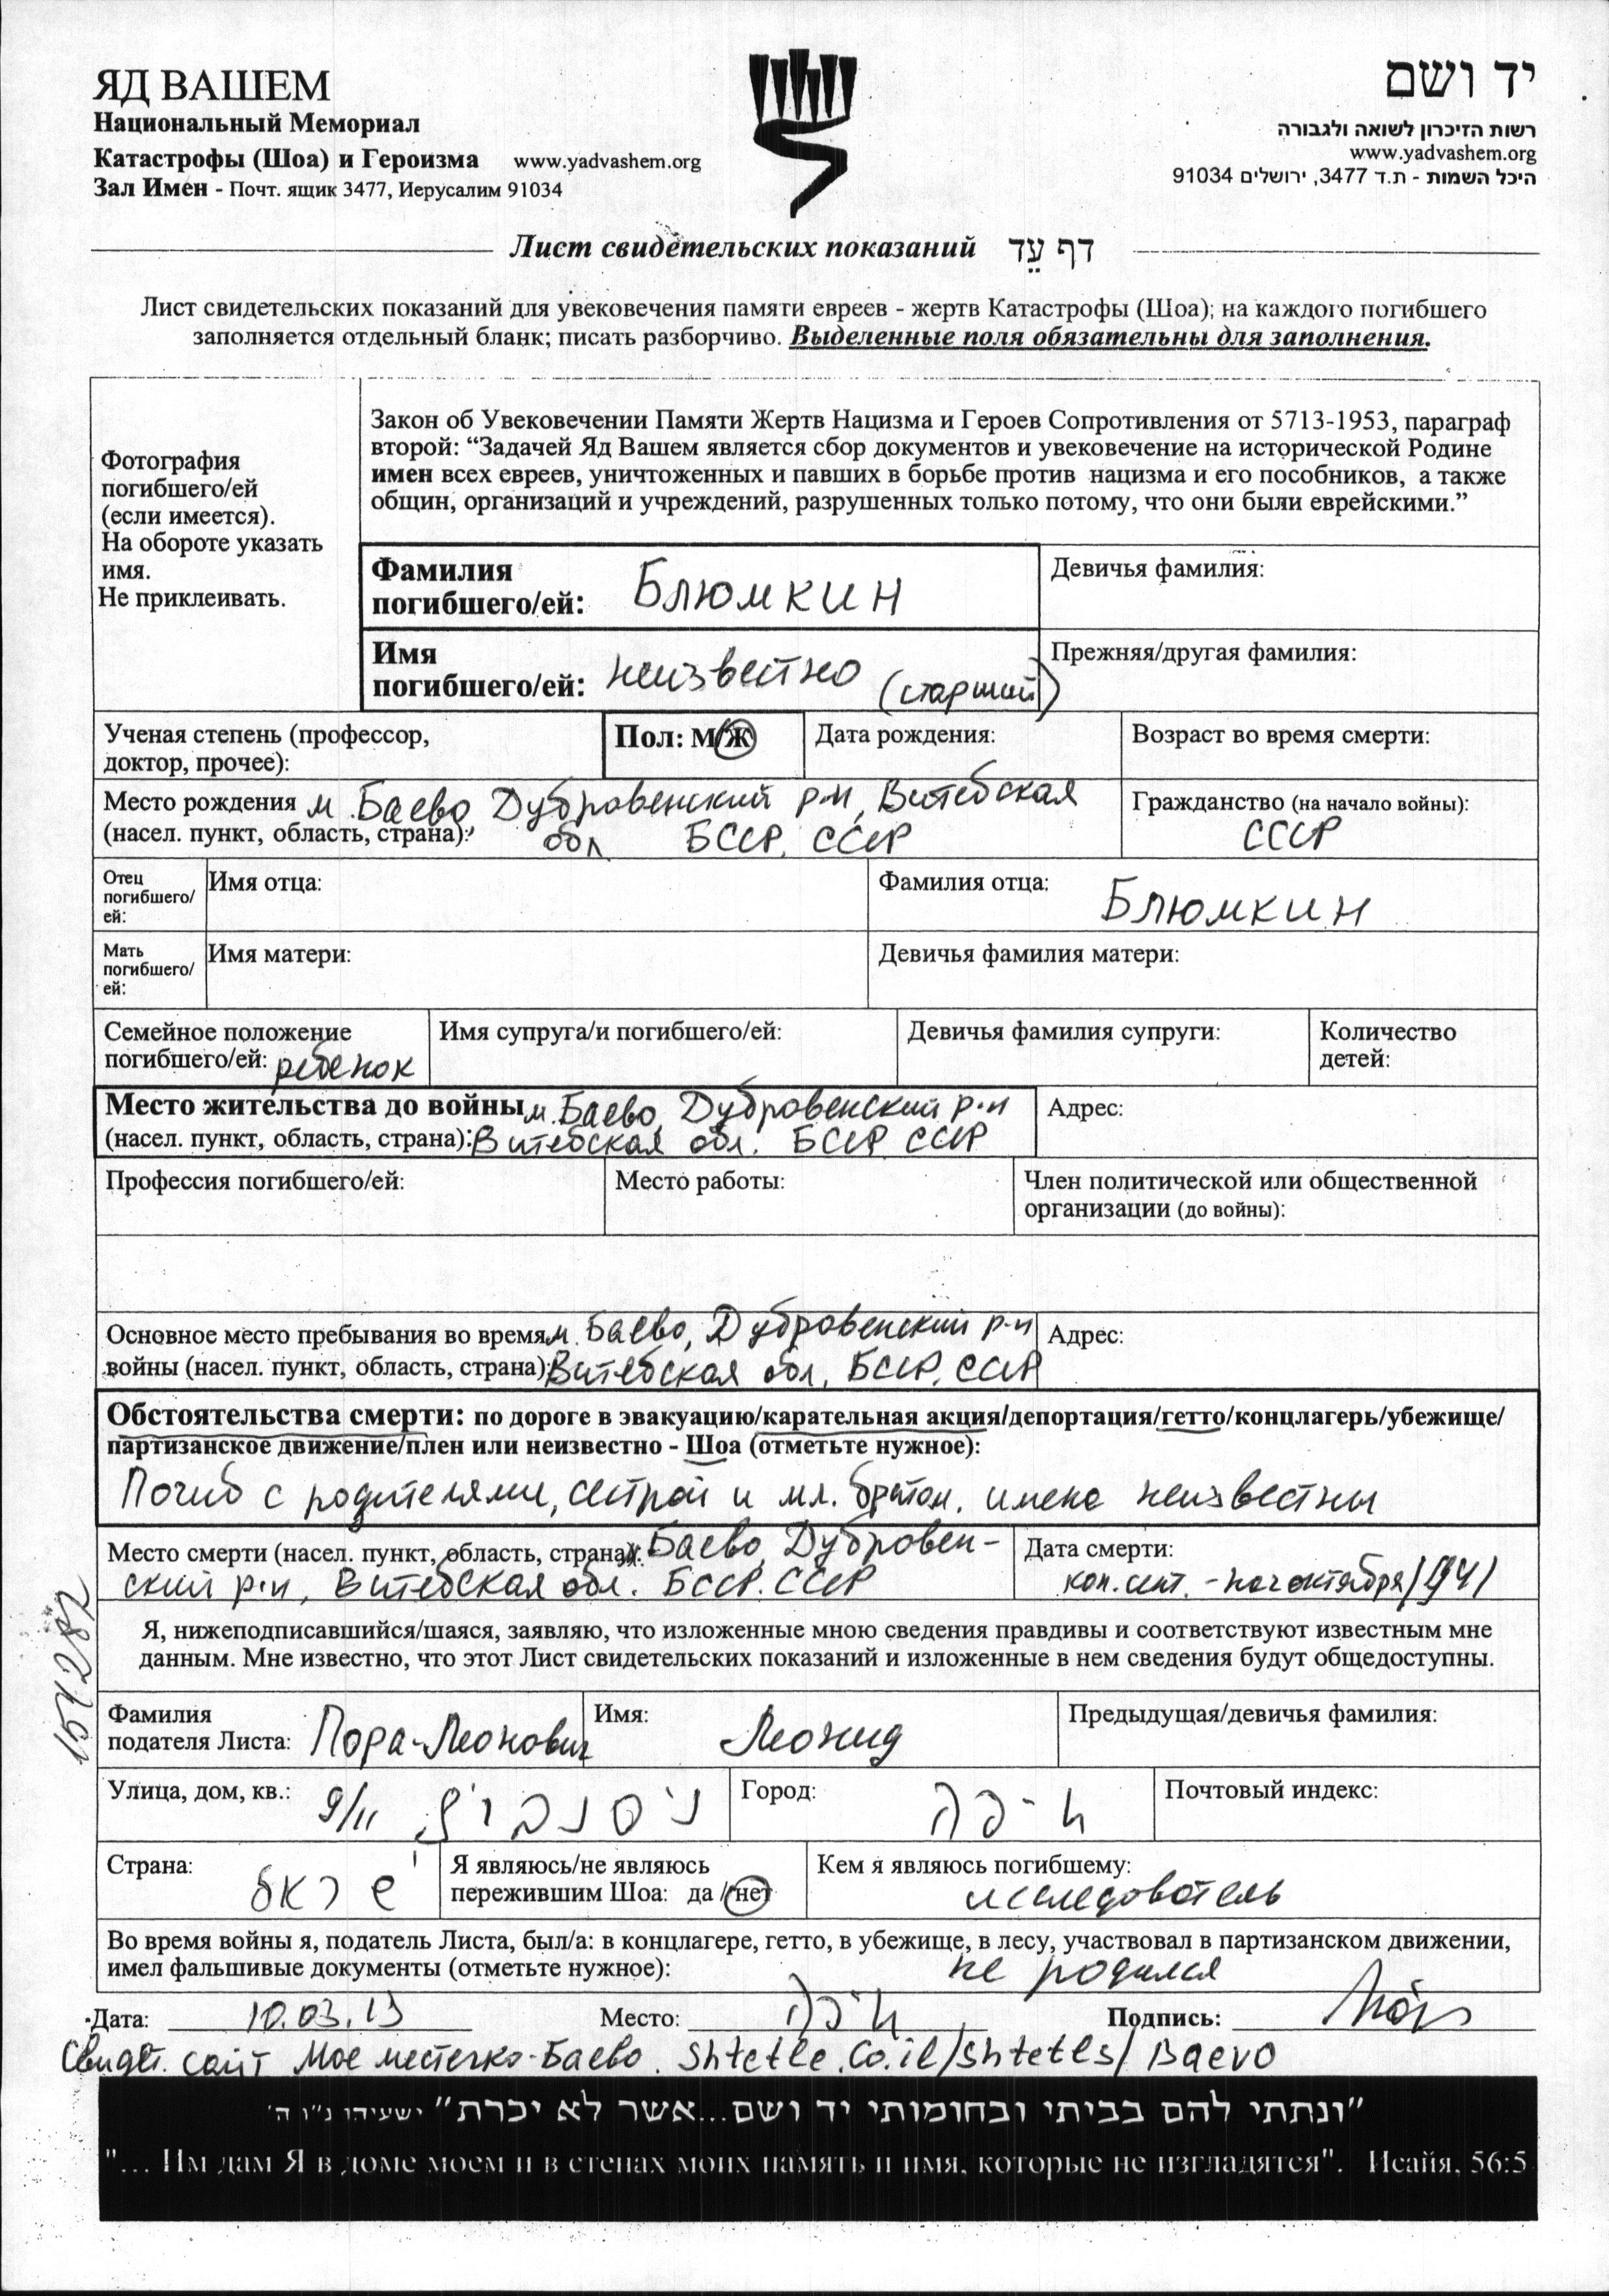 ЯД ВАШЕМ
Национальный Мемориал
Катастрофы (Шоа) и Героизма www.yadvashem.org
Зал Имен - Почт. ящик 3477, Иерусалим 91034
יד ושם
רשות הזיכרון לשואה ולגבורה
www.yadvashem.org
היכל השמות - ת.ד 3477, ירושלים 91034
Лист свидетельских показаний דף עֵד
Лист свидетельских показаний для увековечения памяти евреев - жертв Катастрофы (Шоа); на каждого погибшего
заполняется отдельный бланк; писать разборчиво. Выделенные поля обязательны для заполнения.
Фотография
погибшего/ей
(если имеется).
На обороте указать
имя.
Не приклеивать.
Закон об Увековечении Памяти Жертв Нацизма и Героев Сопротивления от 5713-1953, параграф
второй: “Задачей Яд Вашем является сбор документов и увековечение на исторической Родине
имен всех евреев, уничтоженных и павших в борьбе против нацизма и его пособников, а также
общин, организаций и учреждений, разрушенных только потому, что они были еврейскими.”
Фамилия
погибшего/ей: Блюмкин
Девичья фамилия:
Имя
погибшего/ей: неизвестно (старший)
Прежняя/другая фамилия:
Ученая степень (профессор,
доктор, прочее):
Пол: М/Ж
Дата рождения:
Возраст во время смерти:
Место рождения м. Баево Дубровенский р-н, Витебская
(насел. пункт, область, страна): обл БССР, СССР
Гражданство (на начало войны):
СССР
Отец
погибшего/
ей:
Имя отца:
Фамилия отца: Блюмкин
Мать
погибшего/
ей:
Имя матери:
Девичья фамилия матери:
Семейное положение
погибшего/ей: ребенок
Имя супруга/и погибшего/ей:
Девичья фамилия супруги:
Количество
детей:
Место жительства до войны м. Баево, Дубровенский р-н
(насел. пункт, область, страна): Витебская обл. БССР СССР
Адрес:
Профессия погибшего/ей:
Место работы:
Член политической или общественной
организации (до войны):
Основное место пребывания во время м. Баево, Дубровенский р-н
войны (насел. пункт, область, страна): Витебская обл, БССР, СССР
Адрес:
Обстоятельства смерти: по дороге в эвакуацию/карательная акция/депортация/гетто/концлагерь/убежище/
партизанское движение/плен или неизвестно - Шоа (отметьте нужное):
Погиб с родителями, сестрой и мл. братом. имена неизвестны
Место смерти (насел. пункт, область, страна): м. Баево, Дубровен-
ский р-н, Витебская обл. БССР. СССР
Дата смерти:
кон. сент. - нач октября 1941
Я, нижеподписавшийся/шаяся, заявляю, что изложенные мною сведения правдивы и соответствуют известным мне
данным. Мне известно, что этот Лист свидетельских показаний и изложенные в нем сведения будут общедоступны.
154282
Фамилия
подателя Листа: Пора-Леонович
Имя: Леонид
Предыдущая/девичья фамилия:
Улица, дом, кв.: 9/11
Город: חיפה
Почтовый индекс:
Страна: ישראל
Я являюсь/не являюсь
пережившим Шоа: да / нет
Кем я являюсь погибшему:
исследователь
Во время войны я, податель Листа, был/а: в концлагере, гетто, в убежище, в лесу, участвовал в партизанском движении,
имел фальшивые документы (отметьте нужное): не родился
Дата: 10.03.13 Место: חיפה Подпись:
Свидет. сайт Мое местечко-Баево. Shtetle.Co.il/Shtetls/Baevo
"ונתתי להם בביתי ובחומותי יד ושם...אשר לא יכרת" ישעיהו נ"ו ה'
"... Им дам Я в доме моем и в стенах моих память и имя, которые не изгладятся". Исайя, 56:5